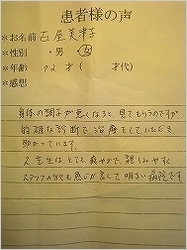 患者様の声
※お名前 古屋美津子
※性別 ・男 ・女
※年齢 72才 ( 才代)
※感想
身体の調子が悪くなると、見てもらうのですが、
的確な診断で治療をしていただき
助かっています。
先生は、とても爽やかで話しやすく
スタッフの皆さんも感じが良くて明るい病院です